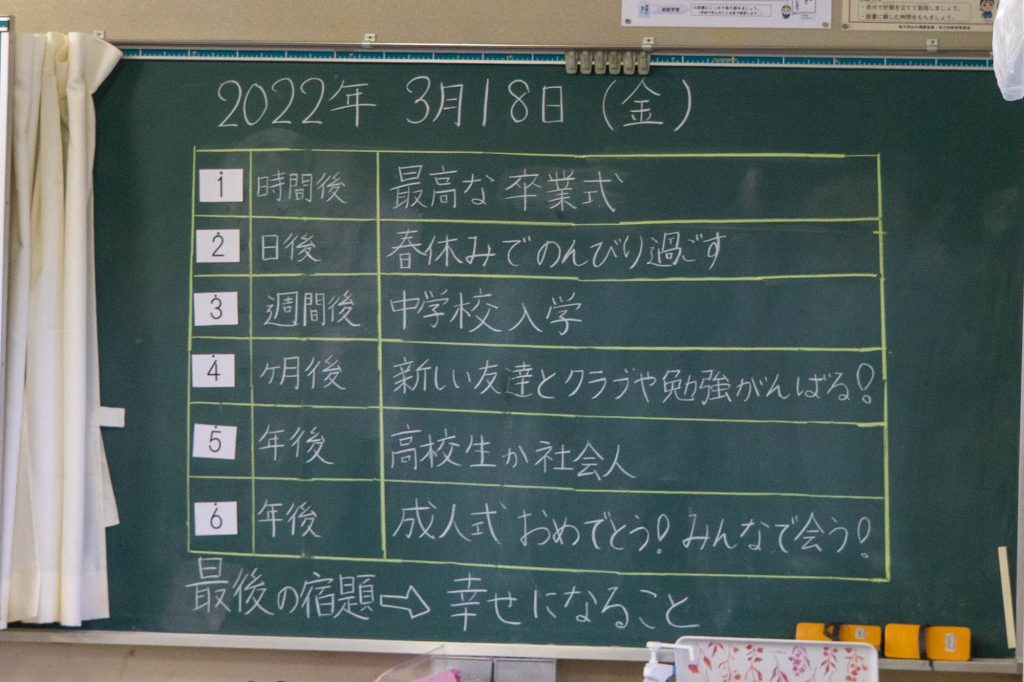 2022年 3月18日 (金)
1 時間後 最高な卒業式
2 日後 春休みでのんびり過ごす
3 週間後 中学校入学
4 ヶ月後 新しい友達とクラブや勉強がんばる!
5 年後 高校生か社会人
6 年後 成人式 おめでとう! みんなで会う!
最後の宿題⇨幸せになること